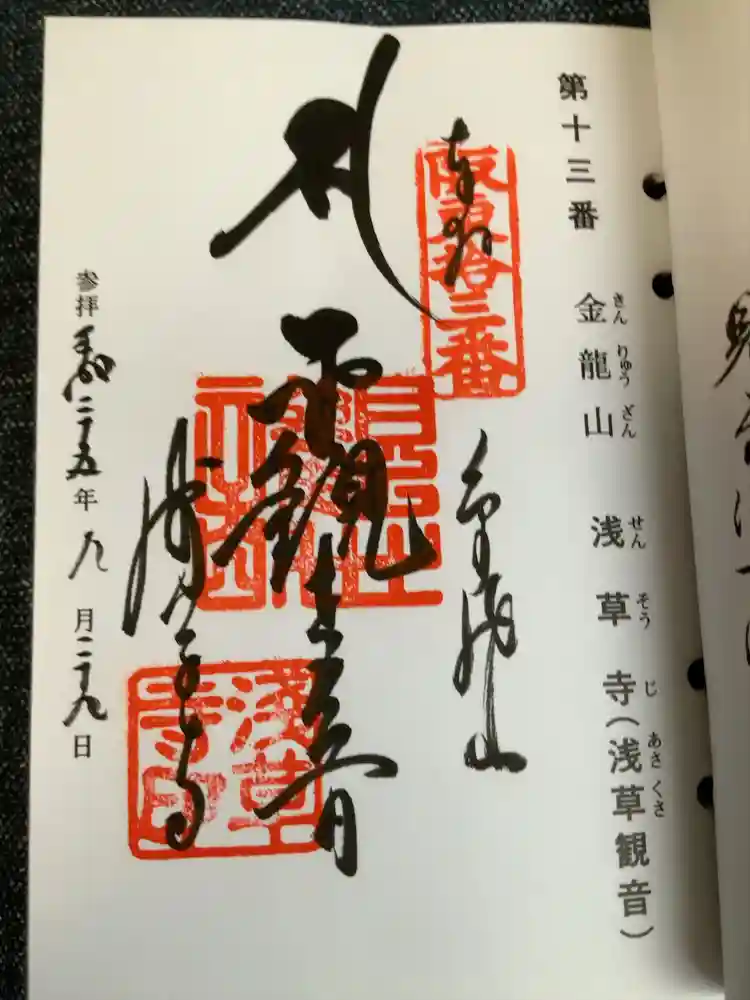 第十三番 金龍山 浅草寺(浅草観音)
きん りゅう ざん せん そう じ あさ くさ
奉拝
阪東拾三番
金龍山
聖観世音
浅草寺
淺草寺印
参拝 平成二十五年九月二十九日